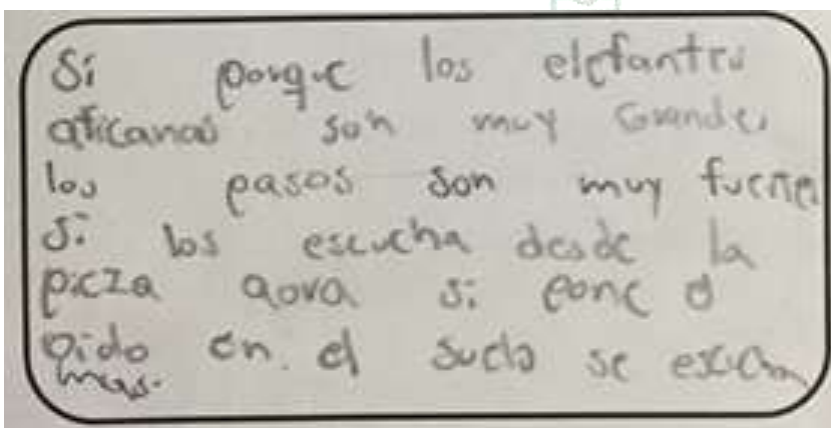 Sí porque los elefantes
aficanos son muy Grandes
los pasos son muy fuertes
si los escucha desde la
pieza aora si pone el
oido en el suelo se escucha
mas.